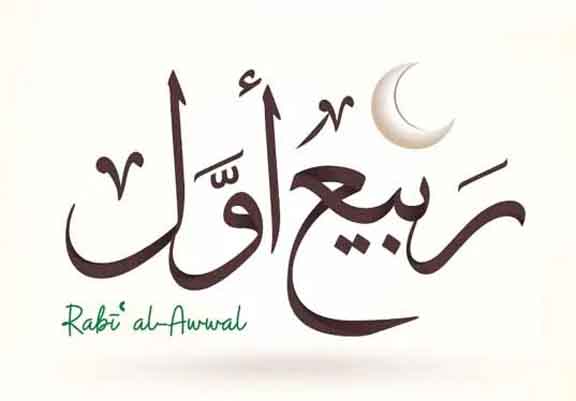 رَبيع أوَّل
Rabīʿ al-Awwal